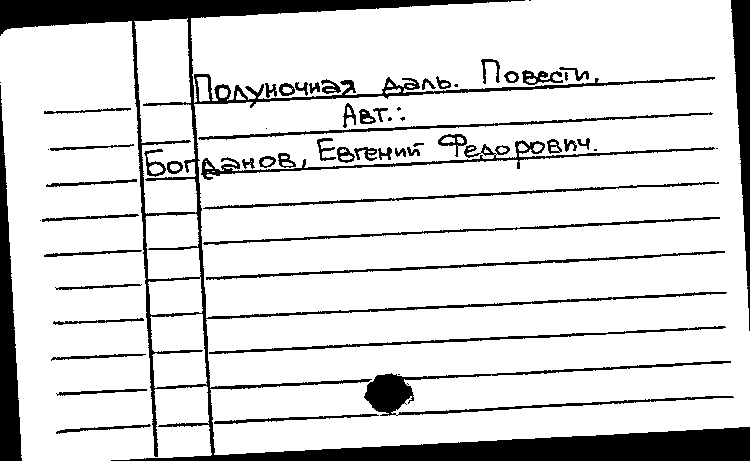 Полуночная даль. Повести.
Авт.:
Богданов, Евгений Федорович.